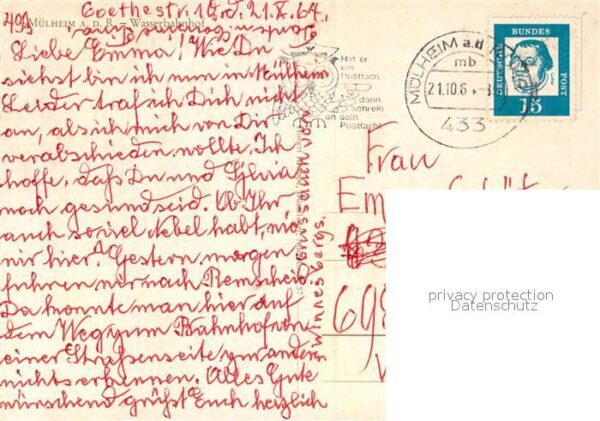 Goethestr. 10, d. 21.X.64.
493
MÜLHEIM A. D. R. – Wasserbahnhof
Liebe Emma! Wie Du
siehst bin ich nun in Mülheim
Leider traf ich Dich nicht
an, als ich mich von Dir
verabschieden wollte. Ich
hoffe, daß Du und Sylvia
noch gesund seid. Ob Ihr
auch so viel Nebel habt, wie
wir hier? Gestern morgen
fuhren wir nach Remscheid
Da konnte man hier auf
dem Weg zum Bahnhof von
einer Straßenseite zur anderen
nichts erkennen. Alles Gute
wünschend grüßt Euch herzlich
Hat er
ein
Postfach
dann
schreib
an sein
Postfach!
MÜLHEIM a.d.
mb
21.10.6
433
DEUTSCHE BUNDESPOST
15
Frau
Em
698
privacy protection
Datenschutz